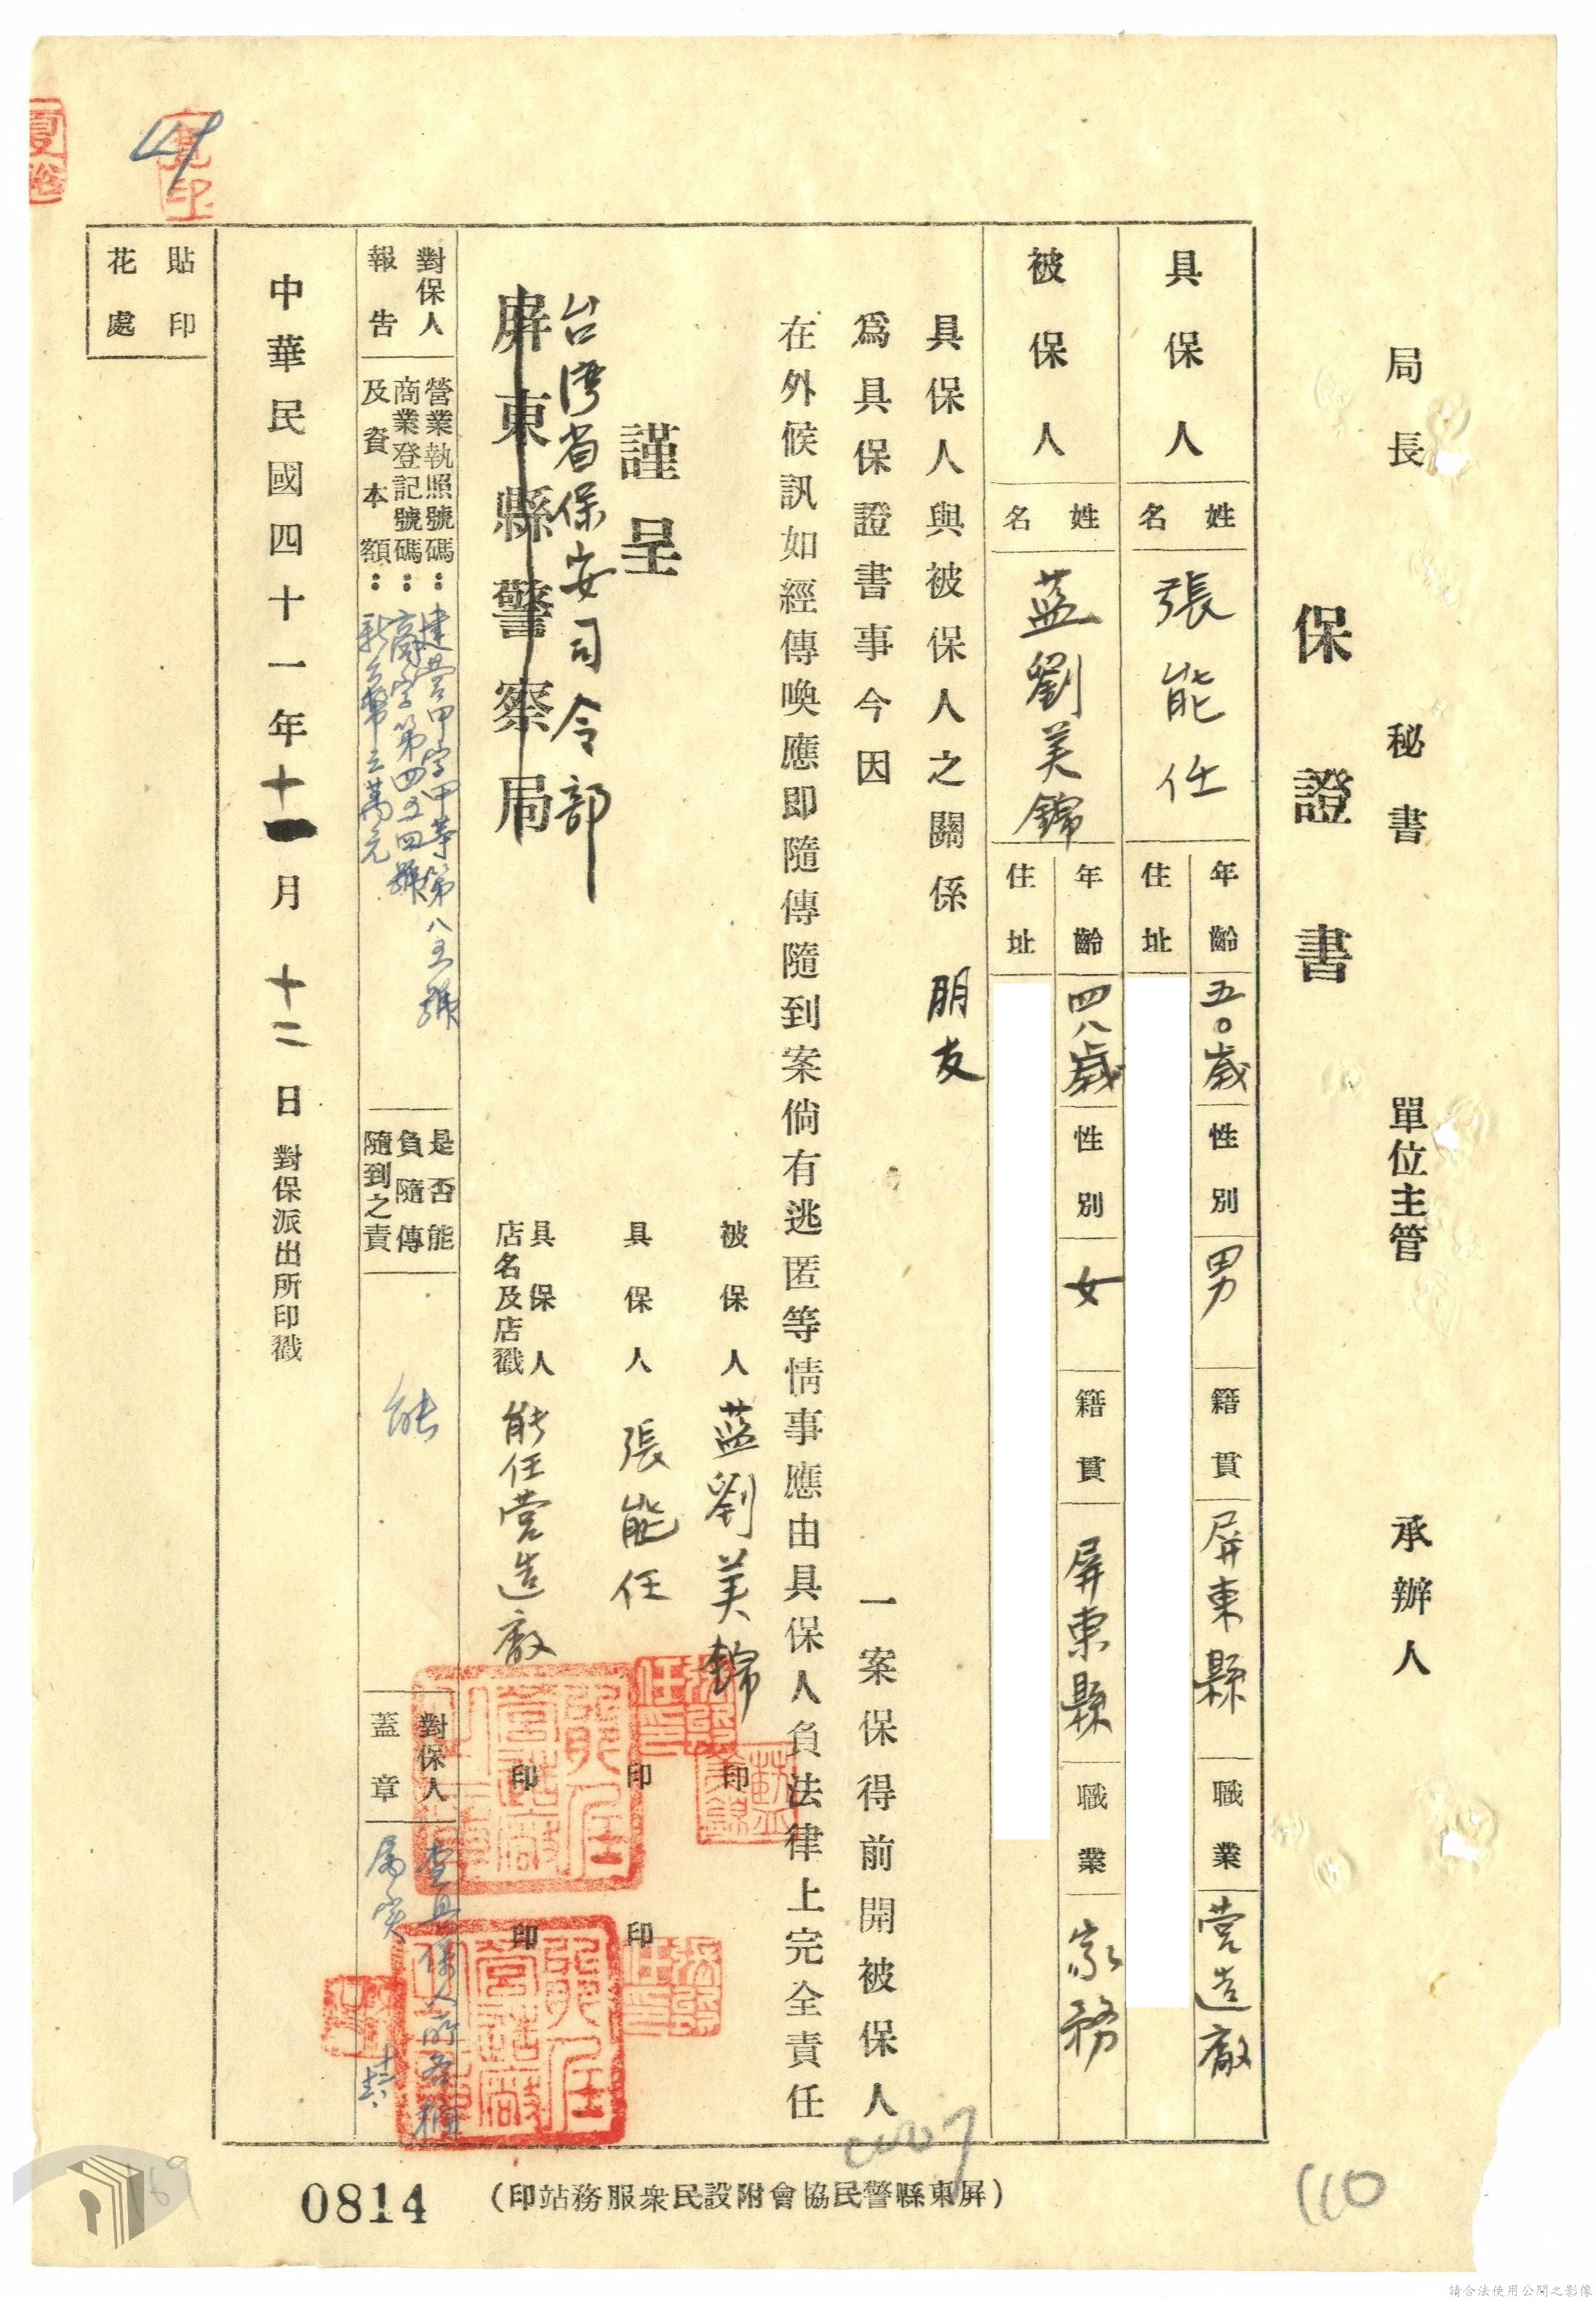 局長　秘書　單位主管　承辦人
保證書
具保人　姓名　張能任　年齡　五〇歲　性別　男　籍貫　屏東縣　職業　營造廠
住址
被保人　姓名　藍劉美錦　年齡　四八歲　性別　女　籍貫　屏東縣　職業　家務
住址
具保人與被保人之關係　朋友
為具保證書事今因　一案保得前開被保人
在外候訊如經傳喚應即隨傳隨到案倘有逃匿等情事應由具保人負法律上完全責任
被保人　藍劉美錦　印
謹呈
具保人　張能任　印　印
台灣省保安司令部
屏東縣警察局
具保人店名及店戳　能任營造廠　印　印
對保人報告
營業執照號碼：建營甲字甲等第八五號
商業登記號碼：商字第四五四號
及資本額：新台幣三萬元
是否能負隨傳隨到之責　能
對保人蓋章
查具保人所各種
屬实
中華民國四十一年十一月十二日　對保派出所印戳
貼印花處
(屏東縣警民協會附設民衆服務站印)
0814
110
169
請合法使用公開之影像